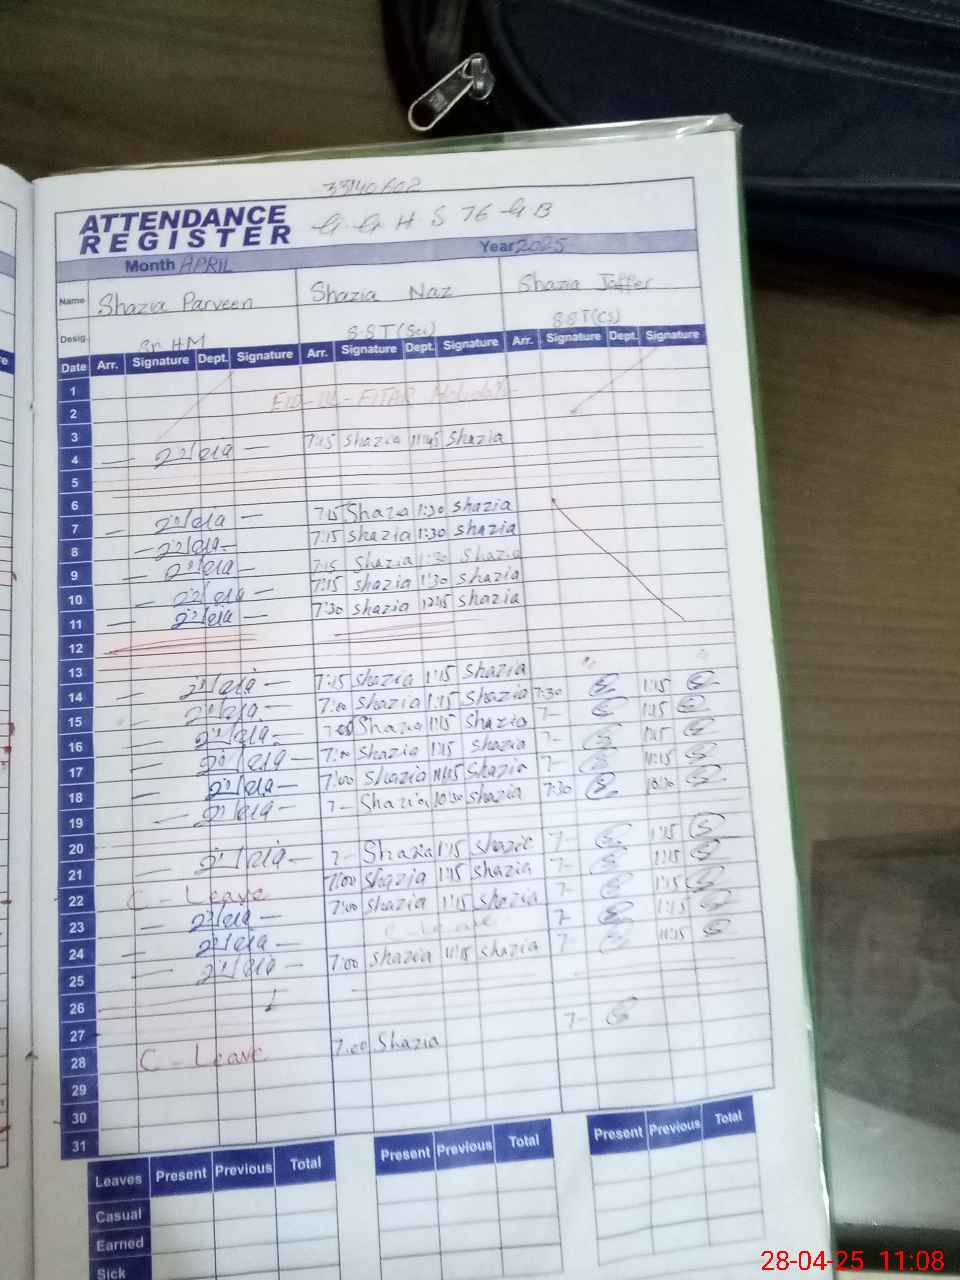 33140602
ATTENDANCE REGISTER G.G H S 76 GB
Month APRIL Year 2025
Name Shazia Parveen Shazia Naz Shazia Jaffer
Desig. Sr. HM S.S.T(Sci) S.S.T(CS)
Date Arr. Signature Dept. Signature Arr. Signature Dept. Signature Arr. Signature Dept. Signature
1
2 EID-UL-FITAR Holidays
3
4 7:15 Shazia 11:45 Shazia
5
6
7 7:15 Shazia 1:30 Shazia
8 7:15 Shazia 1:30 Shazia
9 7:15 Shazia 1:30 Shazia
10 7:15 Shazia 1:30 Shazia
11 7:30 Shazia 12:15 Shazia
12
13
14 7:15 Shazia 1:15 Shazia
15 7:00 Shazia 1:15 Shazia 7:30 1:15
16 7:00 Shazia 1:15 Shazia 7- 1:15
17 7:00 Shazia 1:15 Shazia 7- 1:15
18 7:00 Shazia 11:15 Shazia 7- 11:15
19 7- Shazia 10:30 Shazia 7:30 10:30
20
21 7- Shazia 1:15 Shazia 7- 1:15
22 C - Leave 7:00 Shazia 1:15 Shazia 7- 1:15
23 7:00 Shazia 1:15 Shazia 7- 1:15
24 C - Leave 7- 1:15
25 7:00 Shazia 11:15 Shazia 7- 11:15
26
27
28 C - Leave 7:00 Shazia 7-
29
30
31
Leaves Present Previous Total Present Previous Total Present Previous Total
Casual
Earned
Sick
28-04-25 11:08